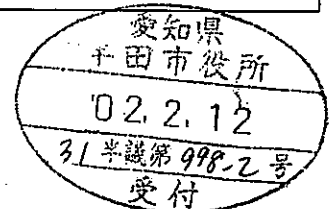 愛知県
半田市役所
'02.2.12
31半議第998-2号
受付